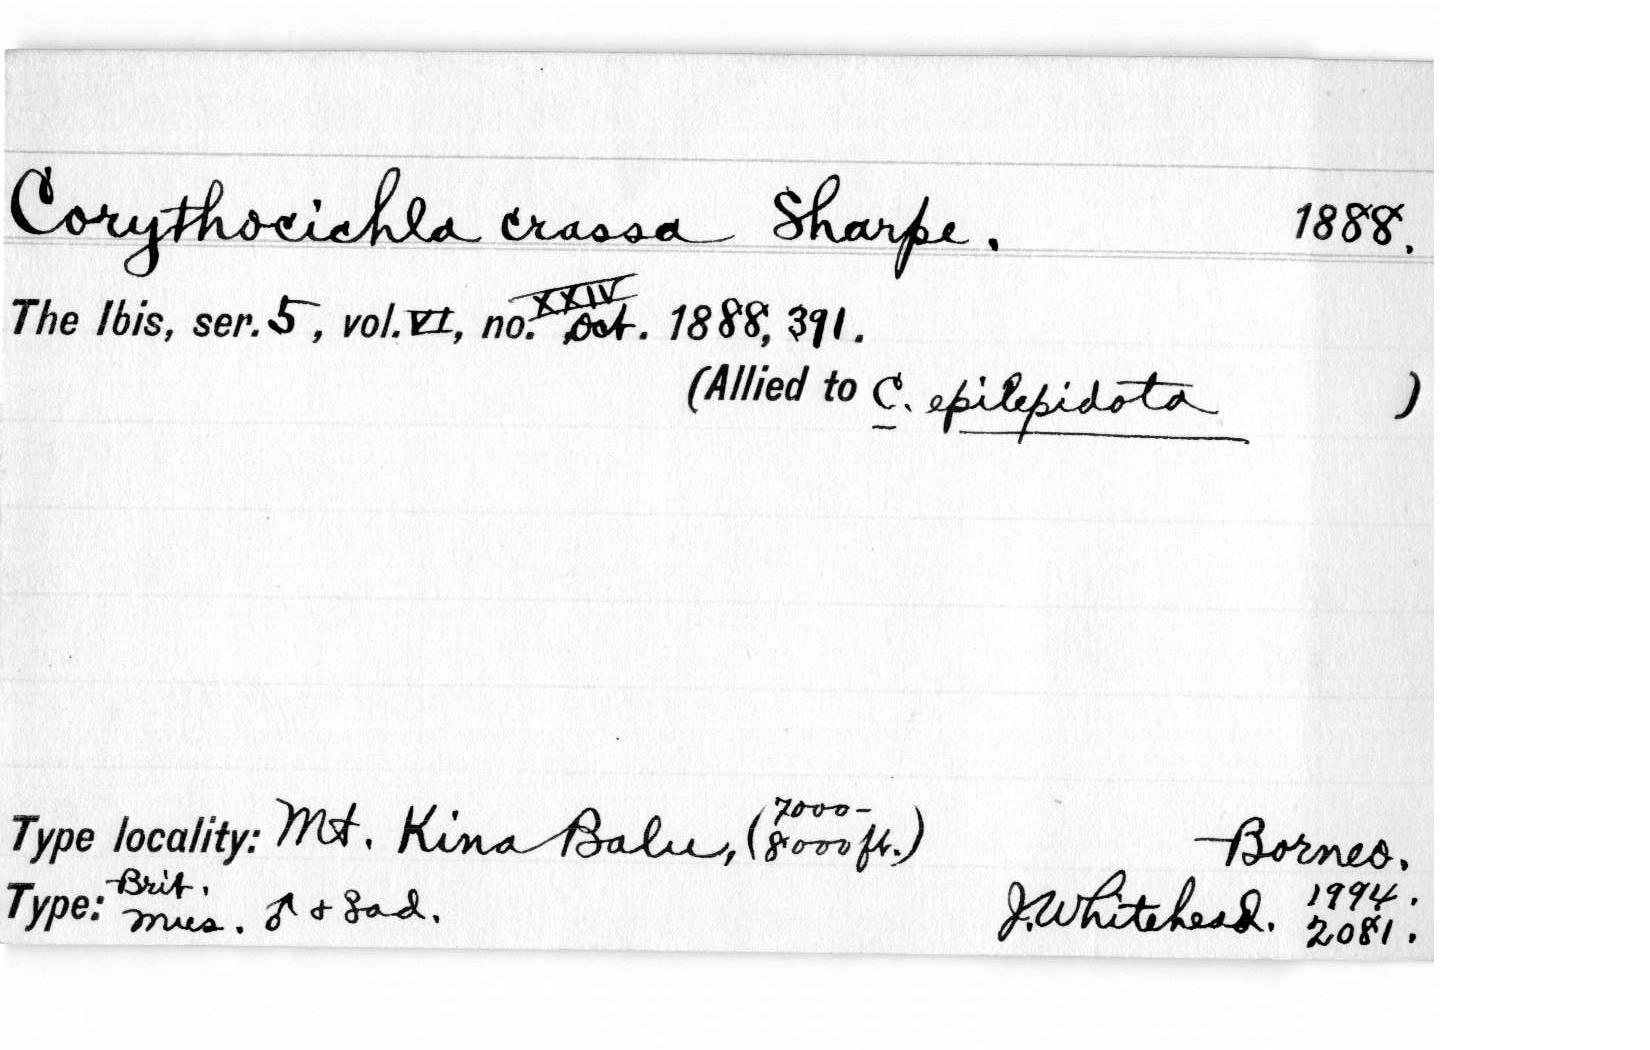 Corythocichla crassa Sharpe. 1888.
The Ibis, ser. 5, vol. VI, no. XXIV Oct. 1888, 391.
(Allied to C. epilepidota )
Type locality: Mt. Kina Balu, (7000-8000 ft.) Borneo.
Type: Brit. Mus. ♂ + ♀ ad. J. Whitehead. 1994. 2081.